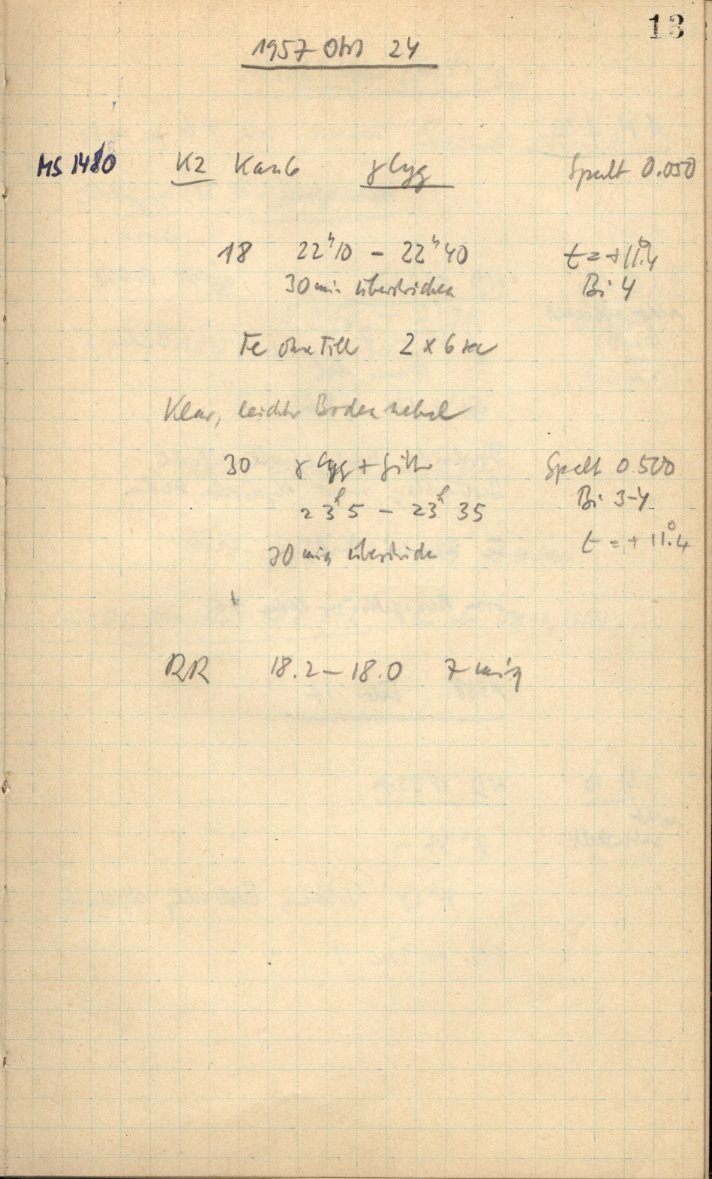 13
1957 Okt 24
MS 1480 K2 Kam b γ Cyg Spalt 0.050
18 22ʰ10 – 22ʰ40 t = +11.°4
30 min überstrichen Bi 4
Fe ohne Filt 2 x 6 sec
Klar, leichter Bodennebel
30 γ Cyg + Filt Spalt 0.500
23ʰ5 – 23ʰ35 Bi 3-4
30 min überstrichen t = + 11.°4
RR 18.2 – 18.0 7 min